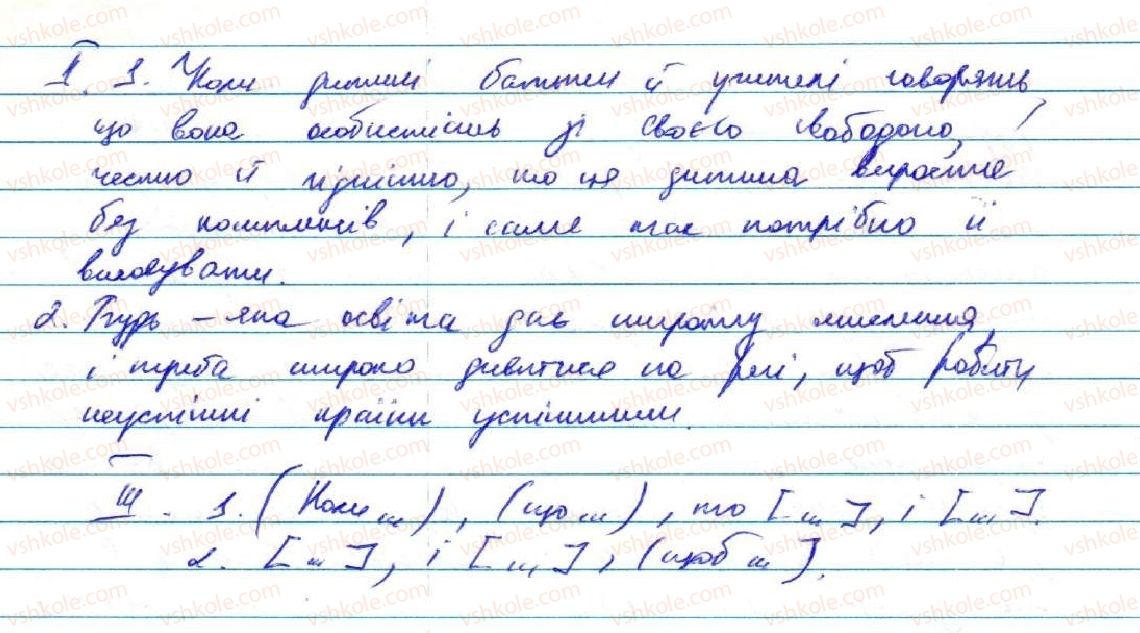 I. 1. Коли дитині батьки й учителі говорять,
що вона особистість зі своєю свободою,
честю й гідністю, то ця дитина виросте
без комплексів, і саме так потрібно її
виховувати.
2. Будь-яка освіта дає широту мислення,
і треба широко дивитися на речі, щоб робити
неуспішні країни успішними.
III. 1. (Коли...), (що...), то [...], і [...].
2. [...], і [...], (щоб...].